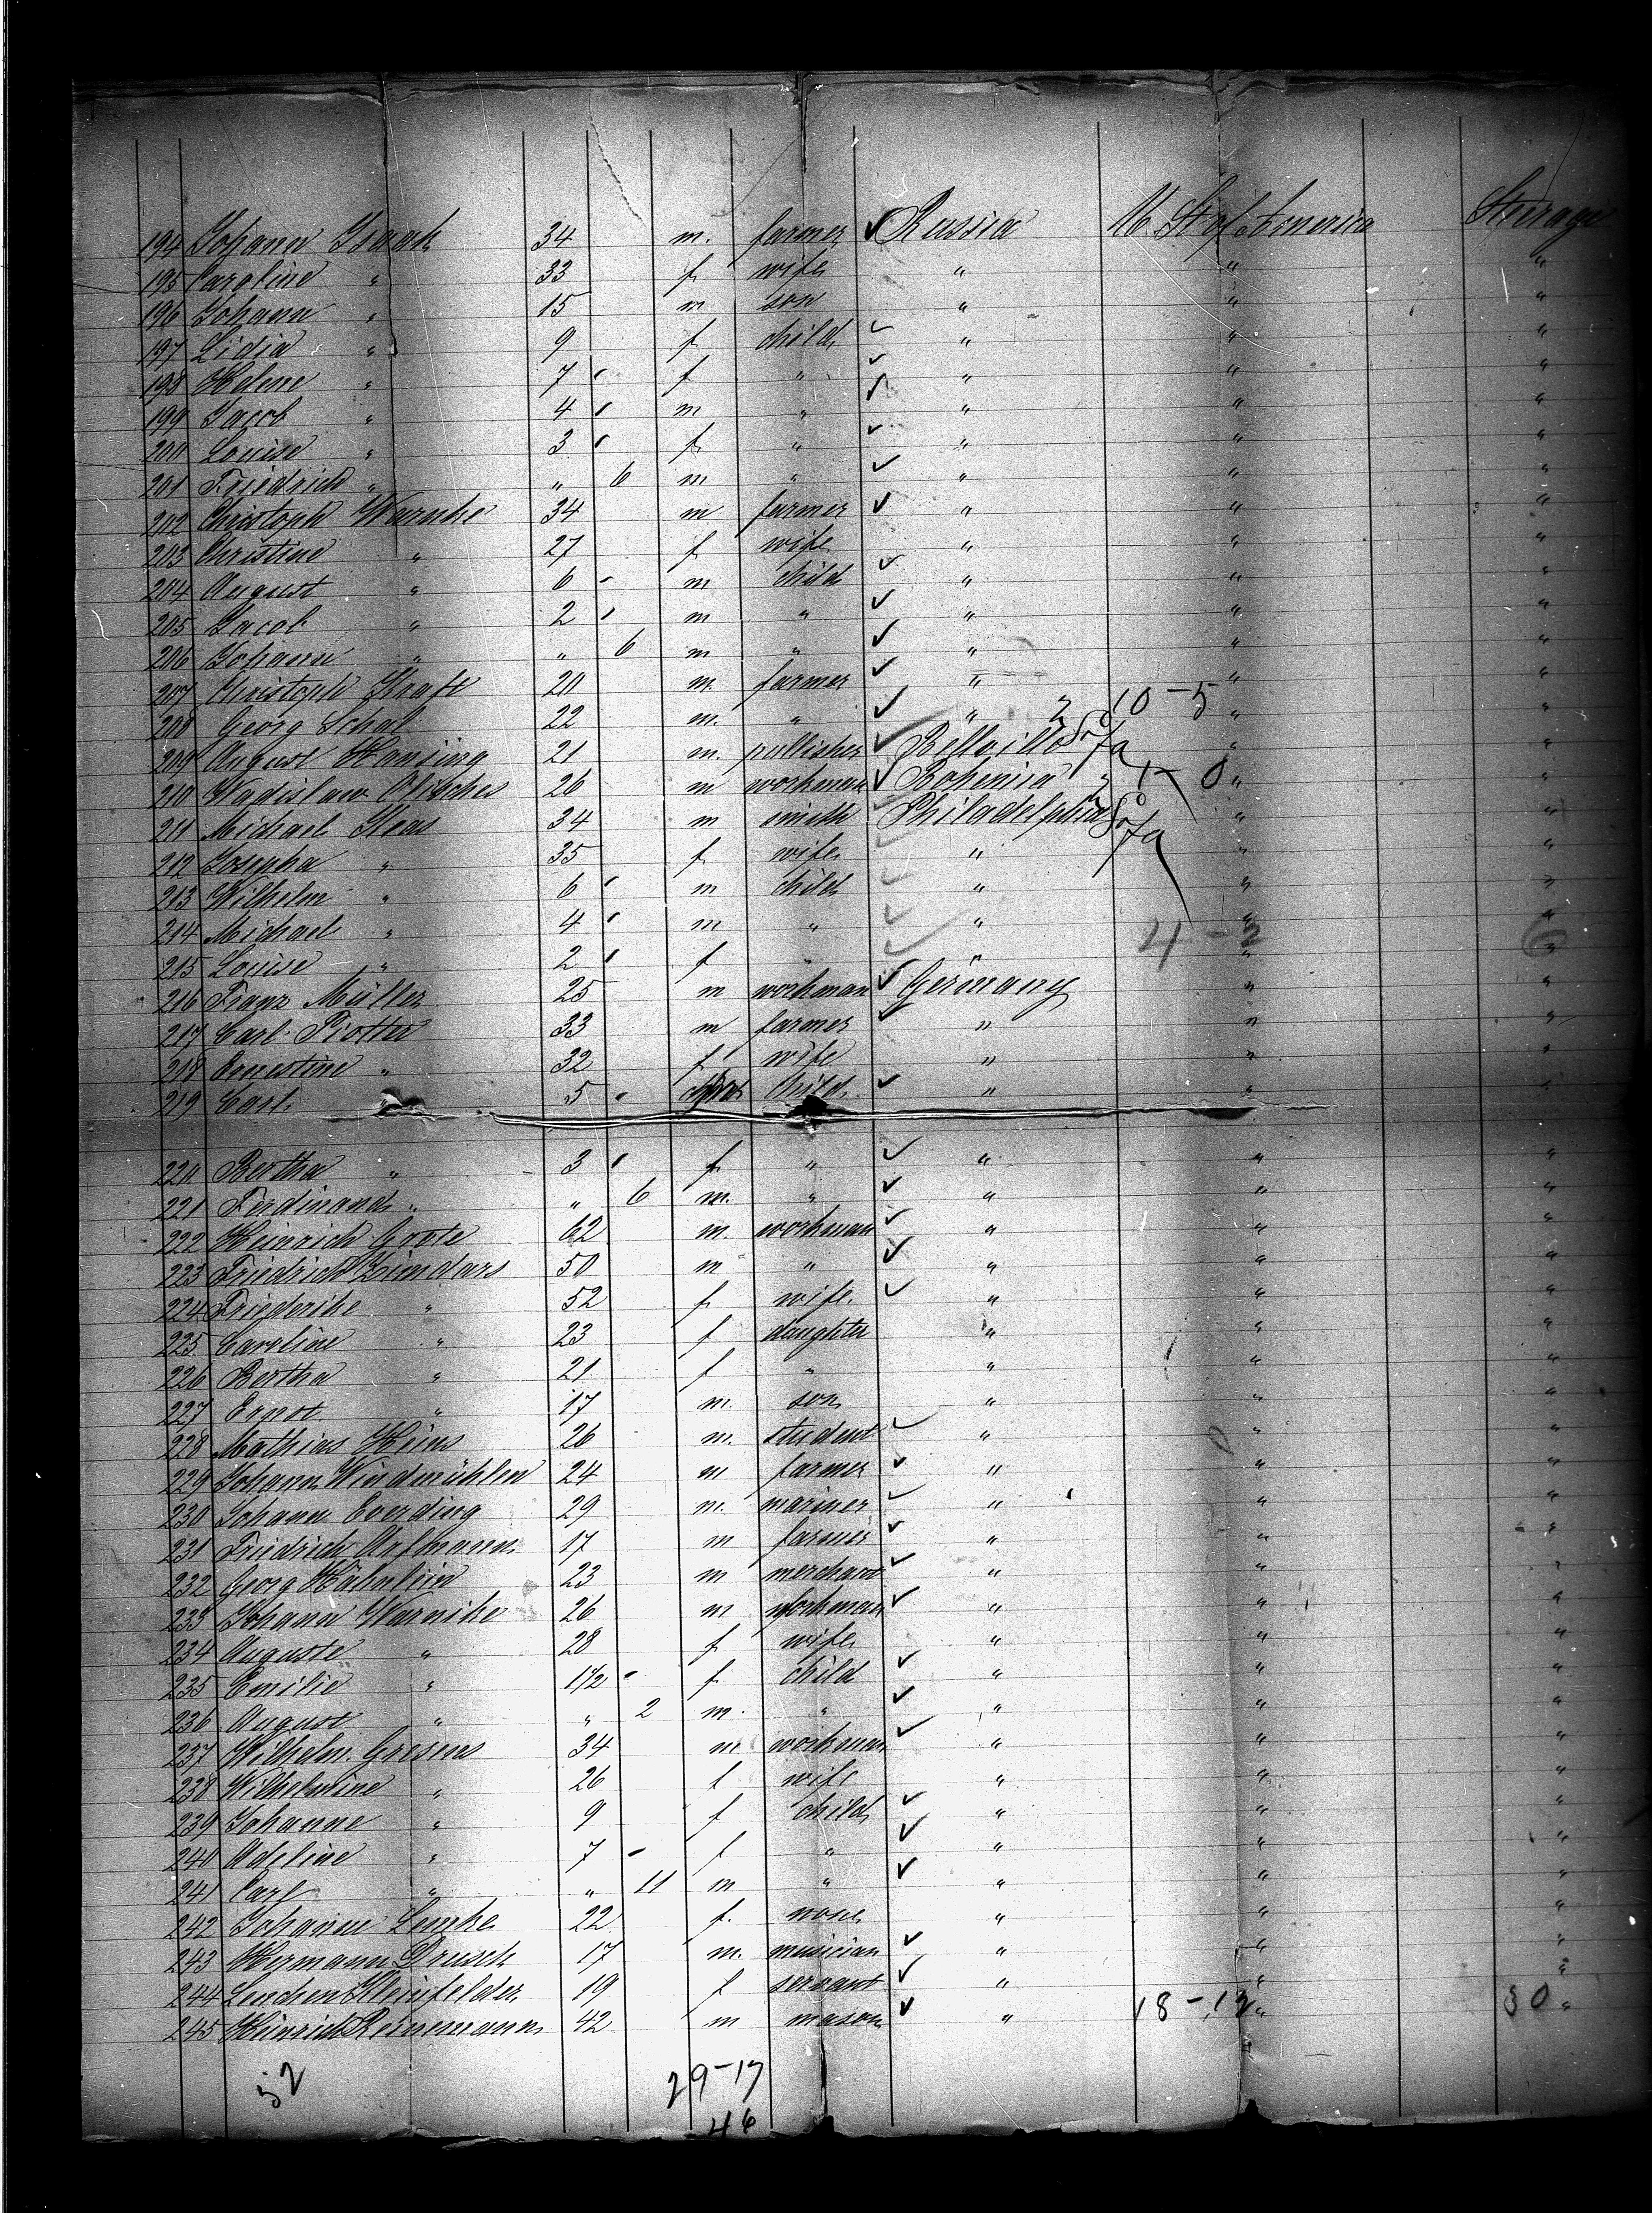 194 Johann Isaak 34 m. farmer ✓ Russia U. St. of America Steerage
195 Caroline " 33 f wife " " "
196 Johann " 15 m son " " "
197 Lidia " 9 f child ✓ " " "
198 Helene " 7 f " ✓ " " "
199 Jacob " 4 m " ✓ " " "
200 Louise " 3 f " ✓ " " "
201 Friedrich " " 6 m " ✓ " " "
202 Christoph Warnke 34 m farmer ✓ " " "
203 Christine " 27 f wife " " "
204 August " 6 m child ✓ " " "
205 Jacob " 2 m " ✓ " " "
206 Johann " " 6 m " ✓ " " "
207 Christoph Kraft 20 m. farmer ✓ " " "
208 Georg Schal 22 m. " ✓ " 10-5 " "
209 August Hansing 21 m. pullisher ✓ Bellville " "
210 Wadislaw Olischer 26 m workman ✓ Bohemia 1-0 " "
211 Michael Haas 34 m smith Philadelphia " "
212 Josepha " 35 f wife " " "
213 Wilhelm " 6 m child ✓ " " "
214 Michael " 4 m " ✓ " " "
215 Louise " 2 f " ✓ " 4-2 " 6 "
216 Franz Müller 25 m workman ✓ Germany " "
217 Carl Piotter 33 m farmer ✓ " " "
218 Ernestine " 32 f wife " " "
219 Carl 5 child ✓ " " "
220 Bertha " 3 f " ✓ " " "
221 Ferdinand " " 6 m. " ✓ " " "
222 Heinrich Grote 62 m. workman ✓ " " "
223 Friedrich Zindars 50 m " ✓ " " "
224 Friederike " 52 f wife. ✓ " " "
225 Caroline " 23 f daughter " " "
226 Bertha " 21 f " " " "
227 Ernst " 17 m. son " " "
228 Mathias Heins 26 m. student ✓ " " "
229 Johann Windmühlen 24 m farmer ✓ " " "
230 Johann Everding 29 m. mariner ✓ " " "
231 Friedrich 17 m farmer ✓ " " "
232 Georg Hähnlein 23 m merchant ✓ " " "
233 Johann Warnike 26 m workman ✓ " " "
234 Auguste " 28 f wife " " "
235 Emilie " 1 1/2 f child ✓ " " "
236 August " " 2 m. " ✓ " " "
237 Wilhelm Gresens 34 m workman ✓ " " "
238 Wilhelmine " 26 f wife " " "
239 Johanne " 9 f child ✓ " " "
240 Adeline " 7 f " ✓ " " "
241 Carl " " 11 m " ✓ " " "
242 Johanne Lemke 22 f. none " " "
243 Hermann Drusch 17 m. musician ✓ " " "
244 Lenchen Kleinfelder 19 f servant ✓ " " "
245 Heinrich Reinemann 42 m mason ✓ " 18-12 " 30 "
52 29-17
46